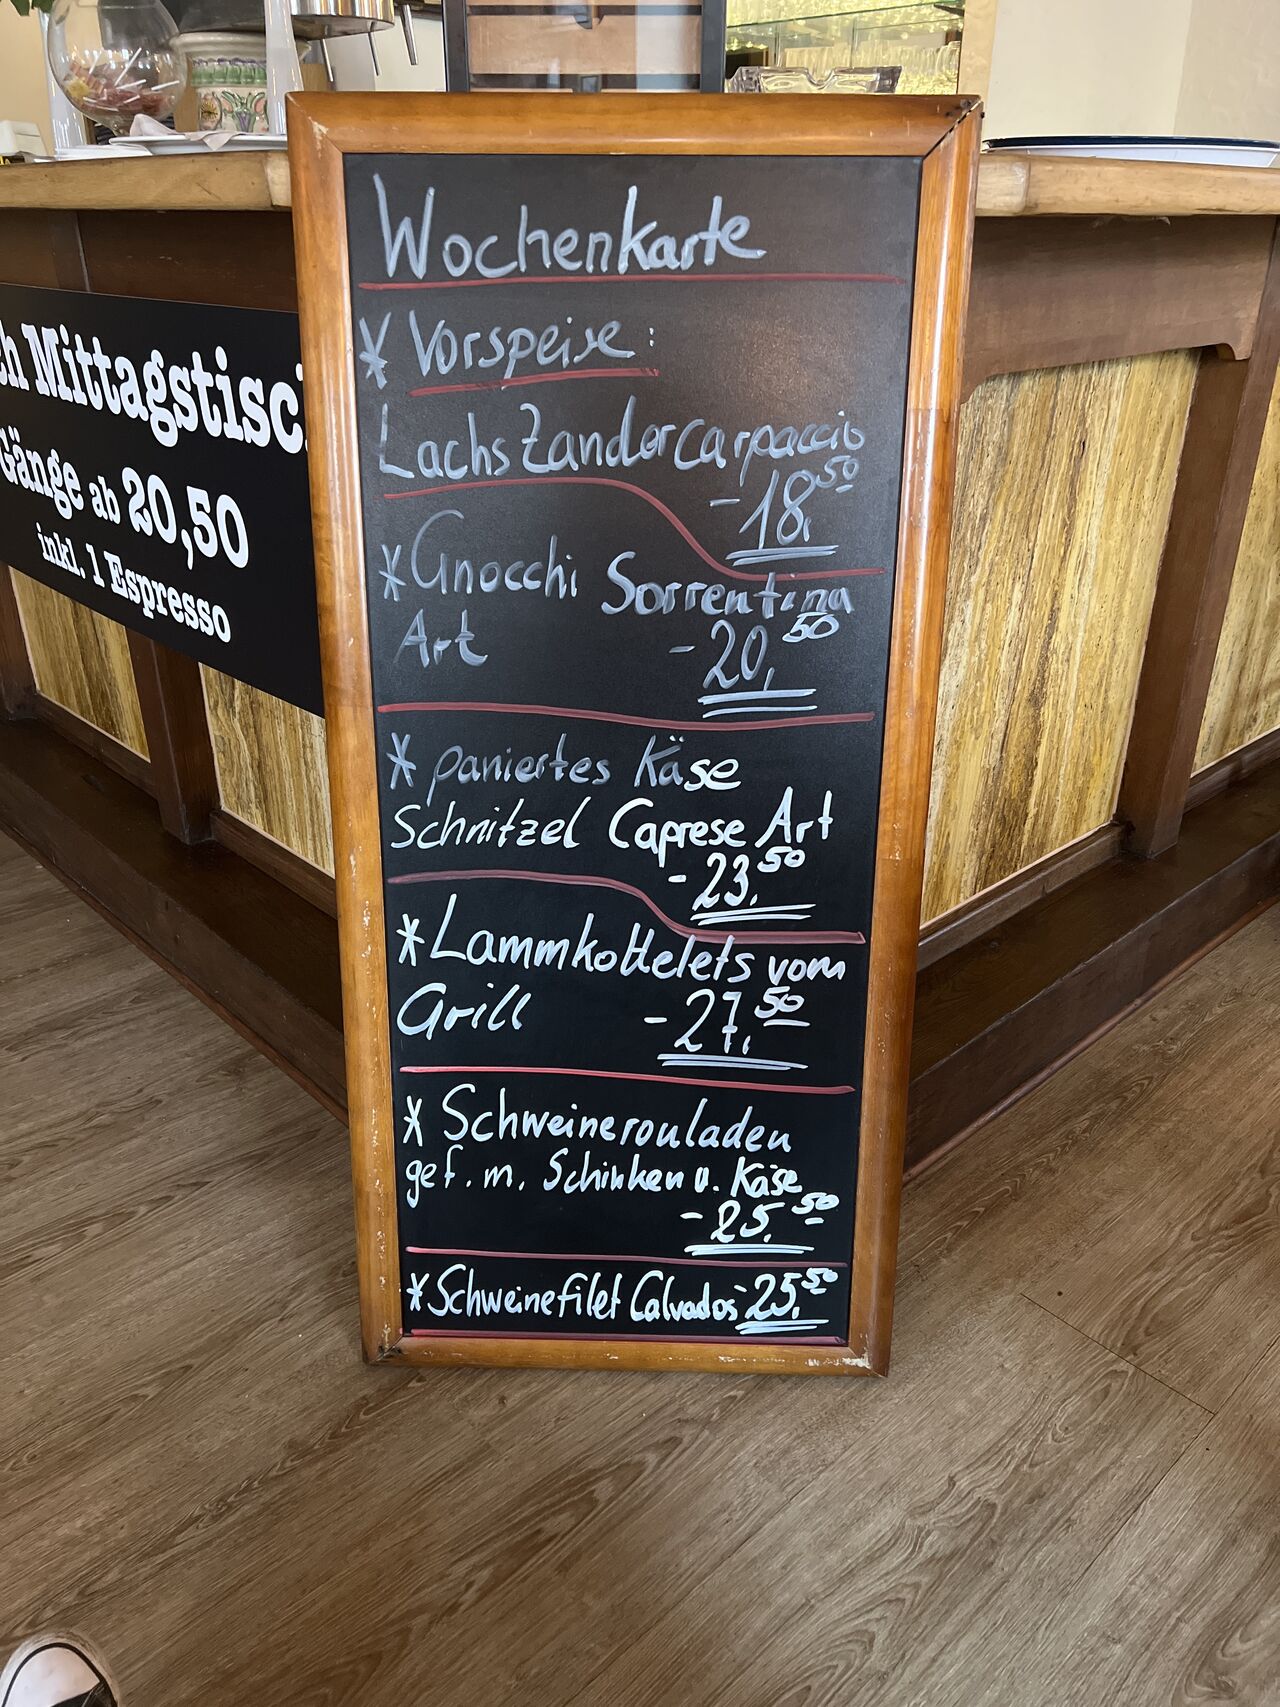 Wochenkarte
* Vorspeise:
Lachs Zandercarpaccio
- 18,50
* Gnocchi Sorrentina
Art - 20,50
* paniertes Käse
Schnitzel Caprese Art
- 23,50
* Lammkottelets vom
Grill - 27,50
* Schweinerouladen
gef. m. Schinken u. Käse
- 25,50
* Schweinefilet Calvados - 25,50
Mittagstisch
Gänge ab 20,50
inkl. 1 Espresso